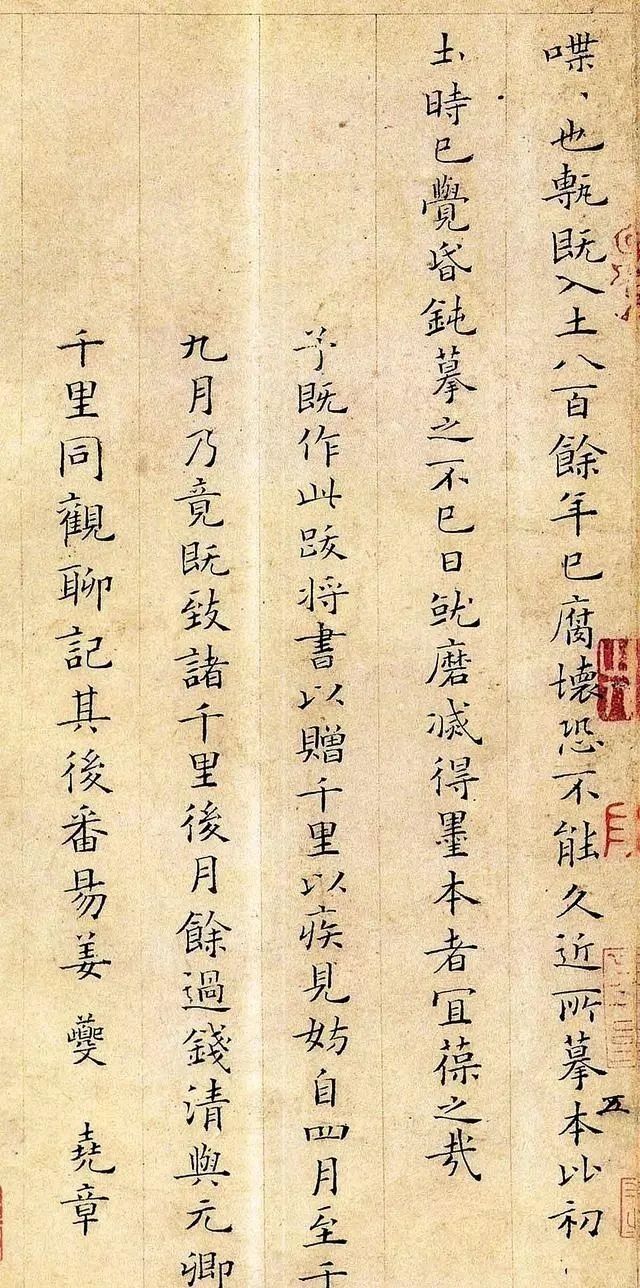 喋、也甎既入土八百餘年已腐壞恐不能久近所摹本比初
土時已覺昏鈍摹之不已日就磨滅得墨本者宜葆之哉
予既作此跋将書以贈千里以疾見妨自四月至于
九月乃竟既致諸千里後月餘過錢清與元卿
千里同觀聊記其後番昜姜夔堯章
五